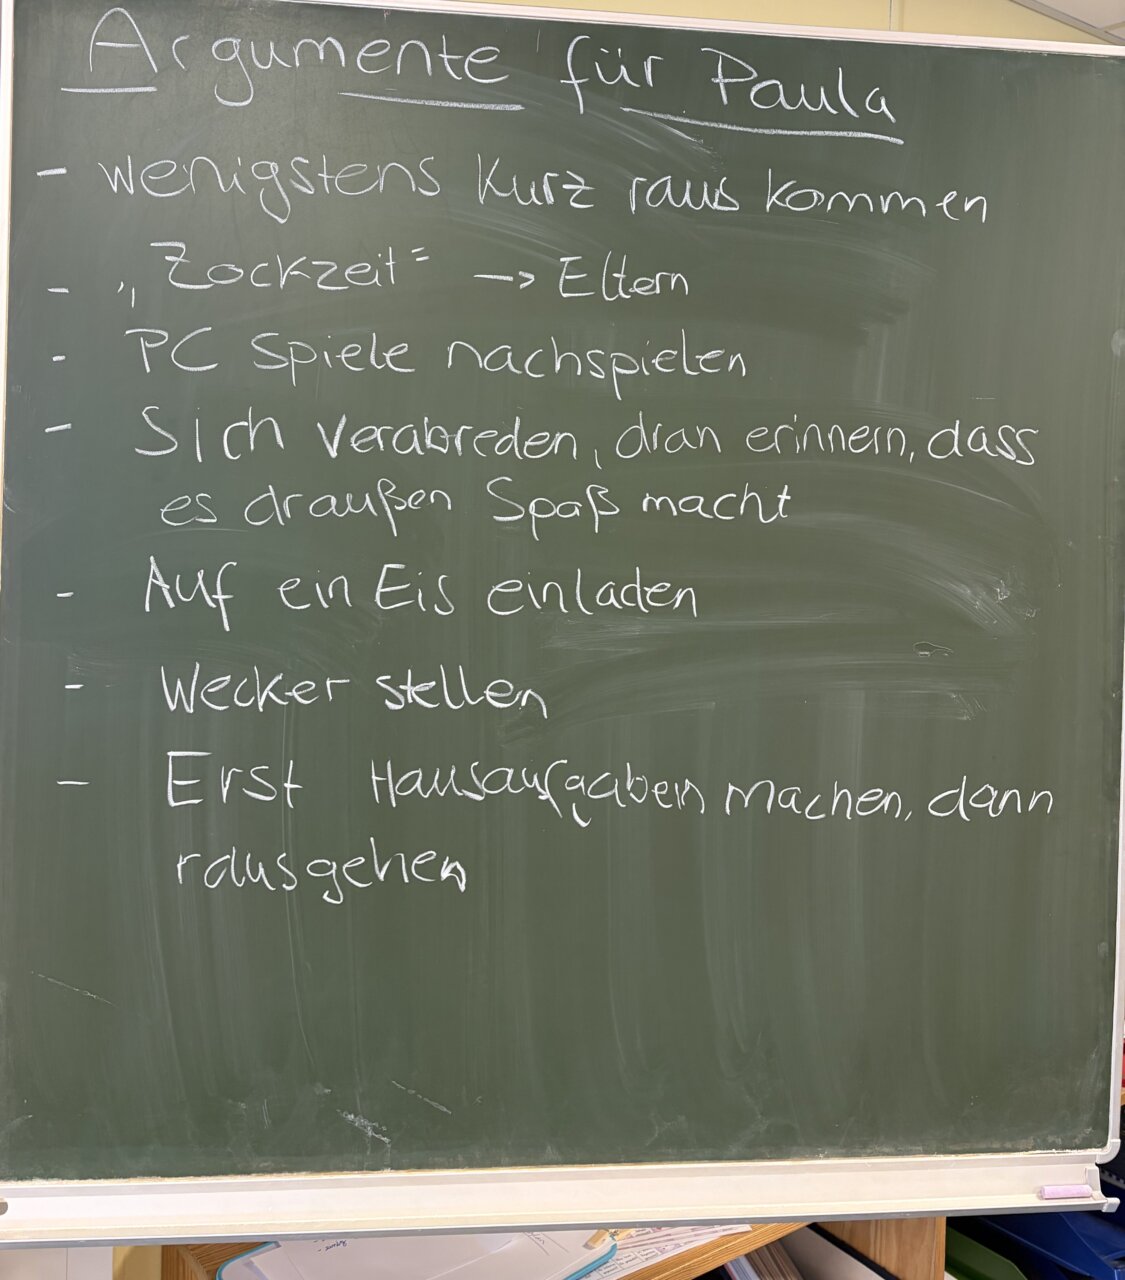 Argumente für Paula
- wenigstens kurz raus kommen
- „Zockzeit" -> Eltern
- PC Spiele nachspielen
- Sich verabreden, dran erinnern, dass
es draußen Spaß macht
- Auf ein Eis einladen
- Wecker stellen
- Erst Hausaufgaben machen, dann
rausgehen